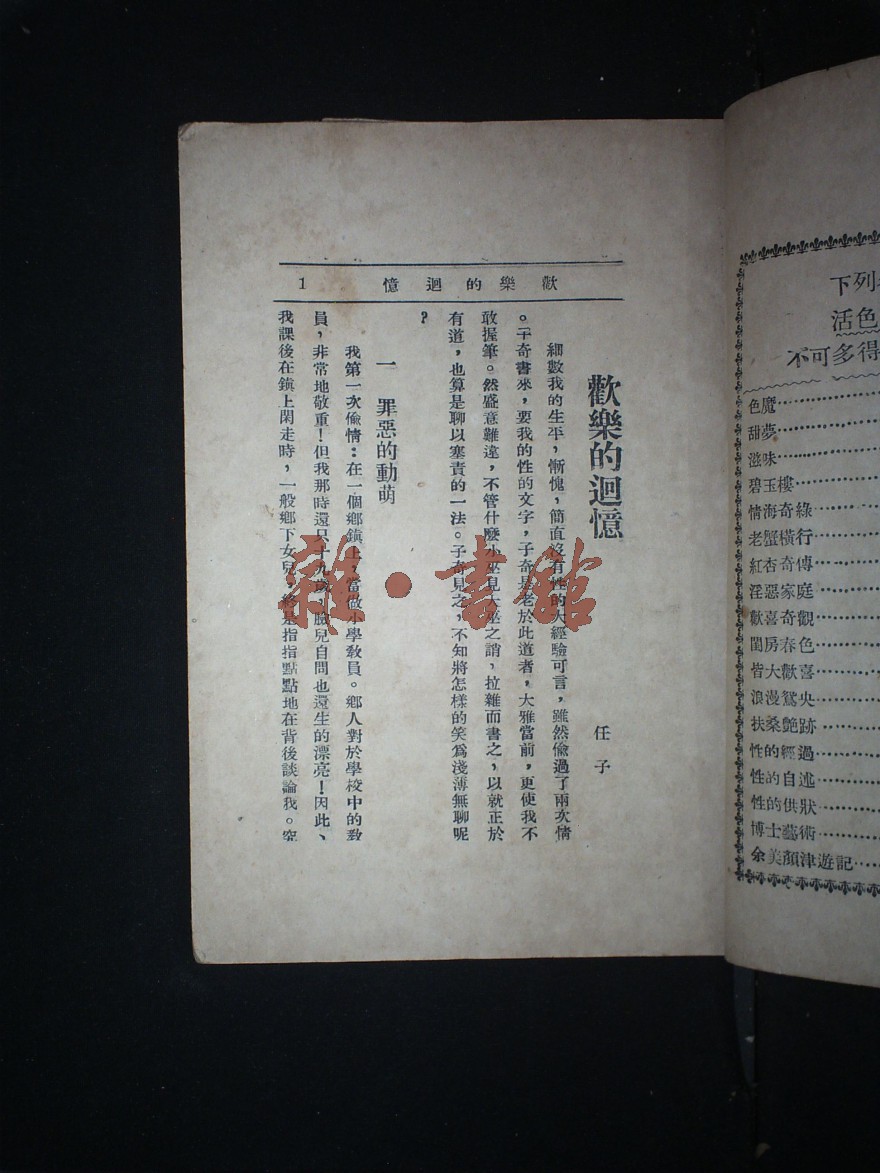 歡樂的迴憶 1
歡樂的迴憶
任子
細數我的生平，慚愧，簡直沒有性的大經驗可言，雖然偷過了兩次情
。子奇書來，要我的性的文字，子奇是老於此道者，大雅當前，更使我不
敢握筆。然盛意難違，不管什麼小巫見大巫之誚，拉雜而書之，以就正於
有道，也算是聊以塞責的一法。子奇見之，不知將怎樣的笑爲淺薄無聊呢
？
一 罪惡的動萌
我第一次偷情：在一個鄉鎮上，當做小學教員。鄉人對於學校中的教
員，非常地敬重！但我那時還只十九歲，臉兒自問也還生的漂亮！因此、
我課後在鎮上閑走時，一般鄉下女兒，終是指指點點地在背後談論我。究
雜·書館
下列
活色
不可多得
色魔
甜夢
滋味
碧玉樓
情海奇緣
老蟹橫行
紅杏奇傳
淫惡家庭
歡喜奇觀
閨房春色
皆大歡喜
浪漫鴛央
扶桑艷跡
性的經過
性的自述
性的供狀
博士藝術
余美顏津遊記